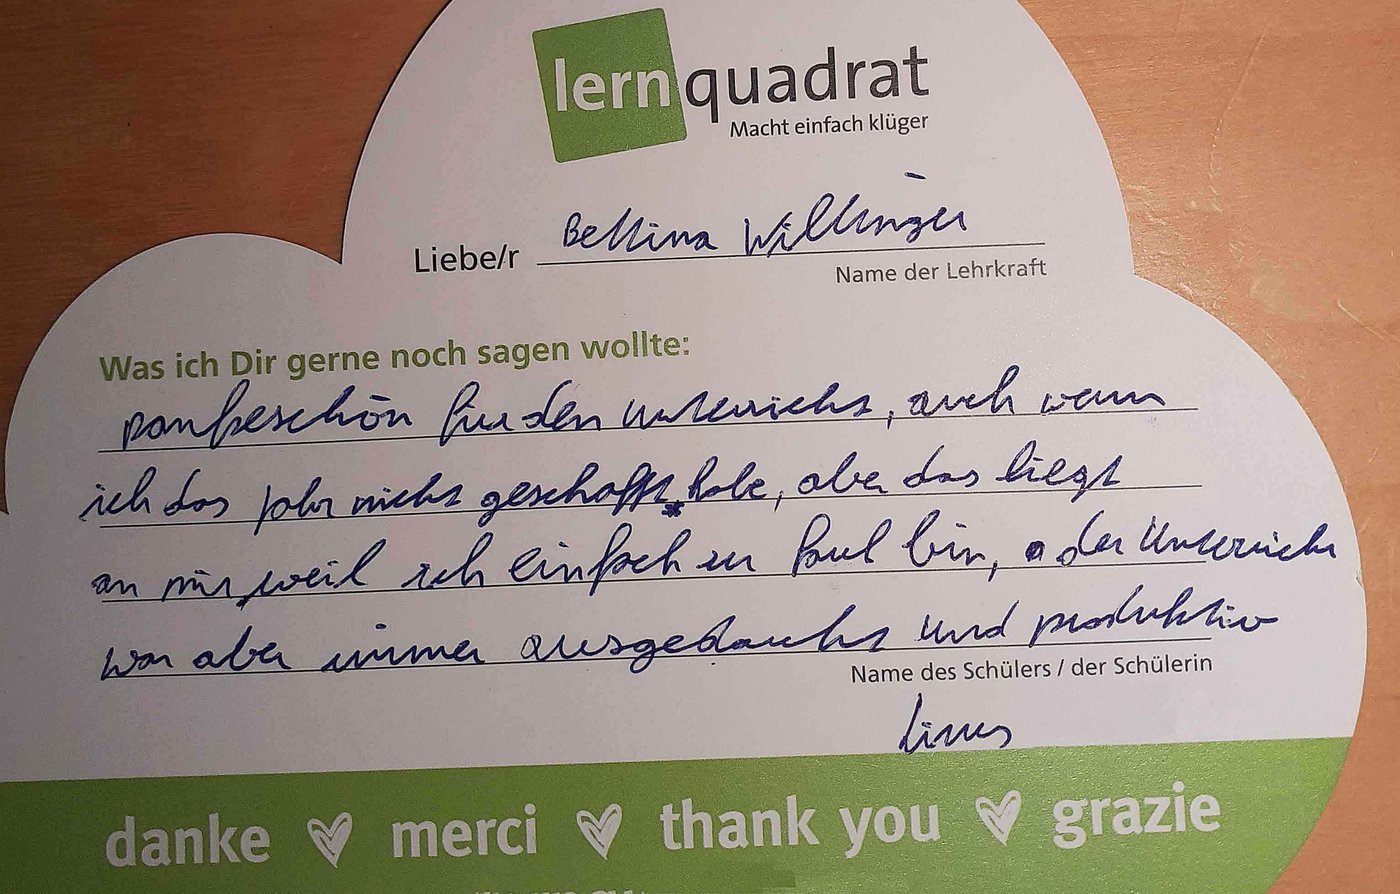 lernquadrat
Macht einfach klüger
Liebe/r Bettina Willinger
Name der Lehrkraft
Was ich Dir gerne noch sagen wollte:
Dankeschön für den Unterricht, auch wenn
ich das Jahr nicht geschafft habe, aber das liegt
an mir, weil ich einfach zu faul bin, der Unterricht
war aber immer ausgedacht und produktiv
Name des Schülers / der Schülerin
Linus
danke merci thank you grazie